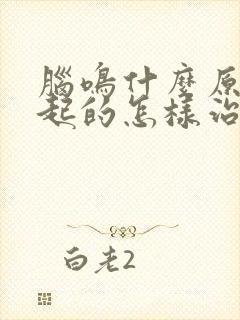 腦鳴什麼原
起的怎樣治
白老2